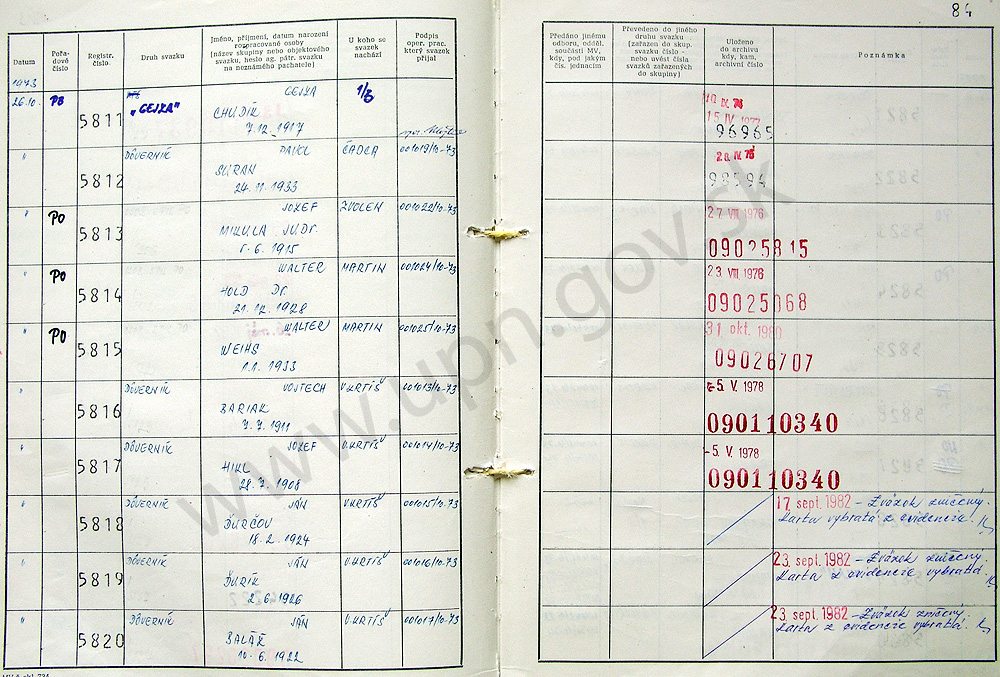 84
Datum
Pořa-
dové
číslo
Registr.
číslo.
Druh svazku
Jméno, příjmení, datum narození
rozpracované osoby
(název skupiny nebo objektového
svazku, heslo ag. pátr. svazku
na neznámého pachatele)
U koho se
svazek
nachází
Podpis
oper. prac.
který svazek
přijal
Předáno jinému
odboru, odděl.
součásti MV,
kdy, pod jakým
čís. jednacím
Převedeno do jiného
druhu svazku
(zařazen do skup.
svazku číslo -
nebo uvést čísla
svazků zařazených
do skupiny)
Uloženo
do archivu
kdy, kam,
archivní číslo
Poznámka
1973
26.10. PB 5811 „GEJZA" GEJZA 1/3
CHUDÍK
7.12.1917
IV. 76
15 IV. 1977
96965
" 5812 DÔVERNÍK PAVOL ČADCA 001019/10-73
SÚRAN
24.11.1933
20. IV. 76
98594
" PO 5813 JOZEF ZVOLEN 001022/10-73
MIKULA JUDr.
5.6.1915
27. VIII. 1976
09025815
" PO 5814 WALTER MARTIN 001024/10-73
HOLD Dr.
21.12.1928
23. VIII. 1976
09025068
" PO 5815 WALTER MARTIN 001025/10-73
WEIHS
1.1.1933
31. okt. 1980
09026707
" 5816 DÔVERNÍK VOJTECH V.KRTÍŠ 001013/10-73
BARIAK
7.7.1911
-5. V. 1978
090110340
" 5817 DÔVERNÍK JOZEF V.KRTÍŠ 001014/10-73
HIKL
28.7.1908
-5. V. 1978
090110340
" 5818 DÔVERNÍK JÁN V.KRTÍŠ 001015/10-73
ĎURČOV
18.2.1924
17. sept. 1982 - Zväzok zničený.
Karta vybratá z evidencie.
" 5819 DÔVERNÍK JÁN V.KRTÍŠ 001016/10-73
ĎURÍK
2.6.1926
23. sept. 1982 - Zväzok zničený
Karta z evidencie vybratá.
" 5820 DÔVERNÍK JÁN V.KRTÍŠ 001017/10-73
BALÁŽ
10.6.1922
23. sept. 1982 - Zväzok zničený.
Karta z evidencie vybratá.
www.upn.gov.sk